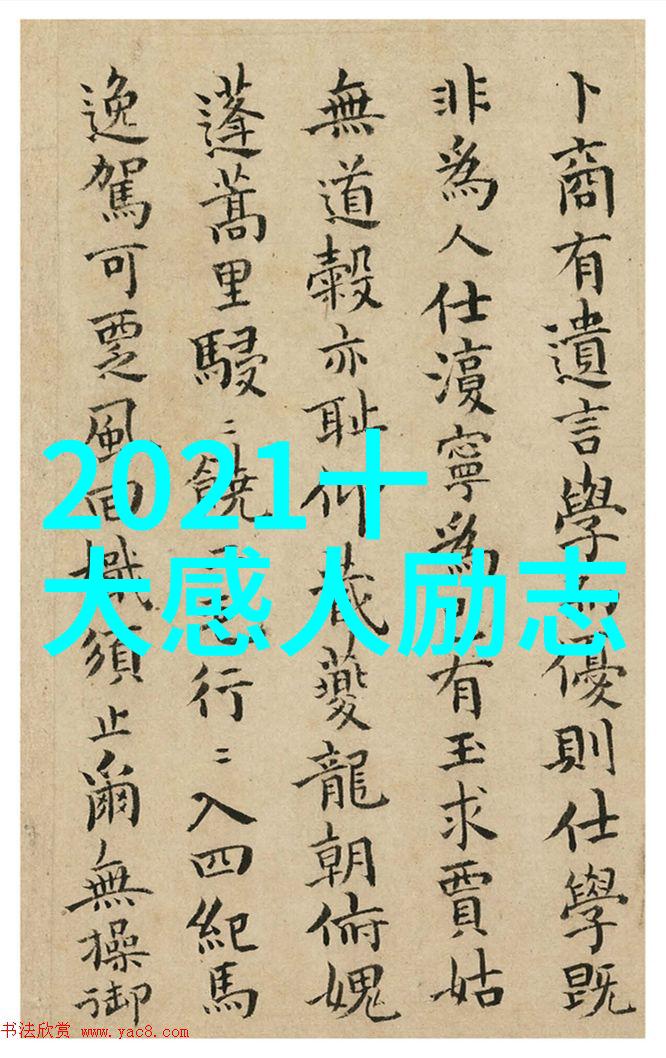 卜商有遺言學優則仕學既
非為人仕寧為有玉求賈姑
無道穀亦恥仰夔龍朝俯媿
蓬蒿里駸〻饒行〻入四紀馬
逸駕可覂風回檝須止爾無操御
2021十
大感人励志
书法欣赏 www.yac8.com